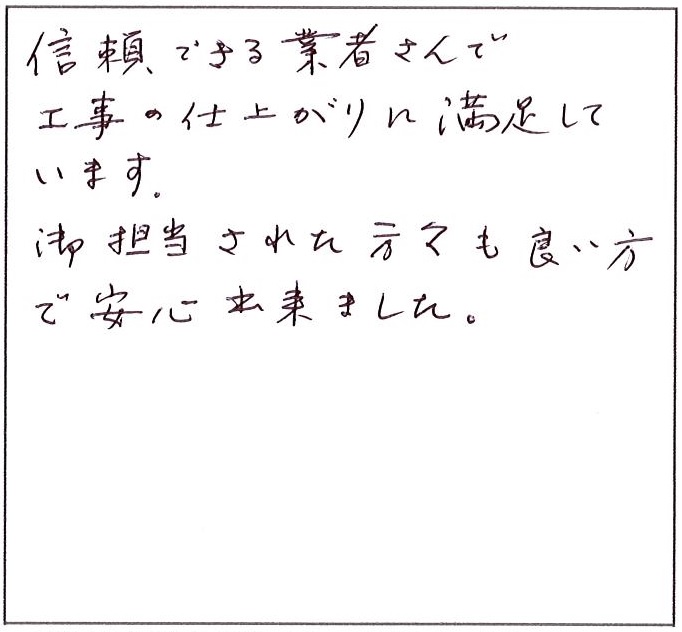 信頼できる業者さんで
工事の仕上がりに満足して
います。
御担当された方々も良い方
で安心出来ました。